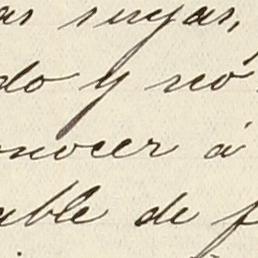 as suyas,
do y no
nocer á
able de f